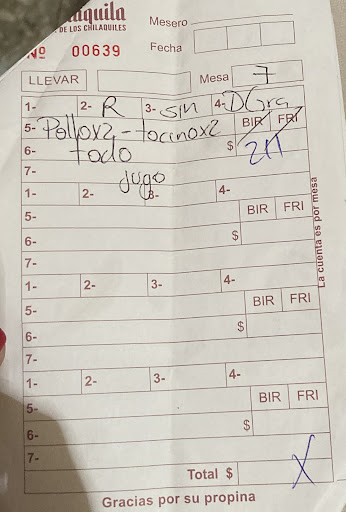 aquila
DE LOS CHILAQUILES
Mesero
Nº 00639
Fecha
LLEVAR Mesa 7
1- 2- R 3- sin 4- DGra
5- Pollox2 - tocinox2 BIR FRI
6- todo $ 211
7- jugo
1- 2- 3- 4-
5- BIR FRI
6- $
7-
1- 2- 3- 4-
5- BIR FRI
6- $
7-
1- 2- 3- 4-
5- BIR FRI
6- $
7-
Total $ X
Gracias por su propina
La cuenta es por mesa